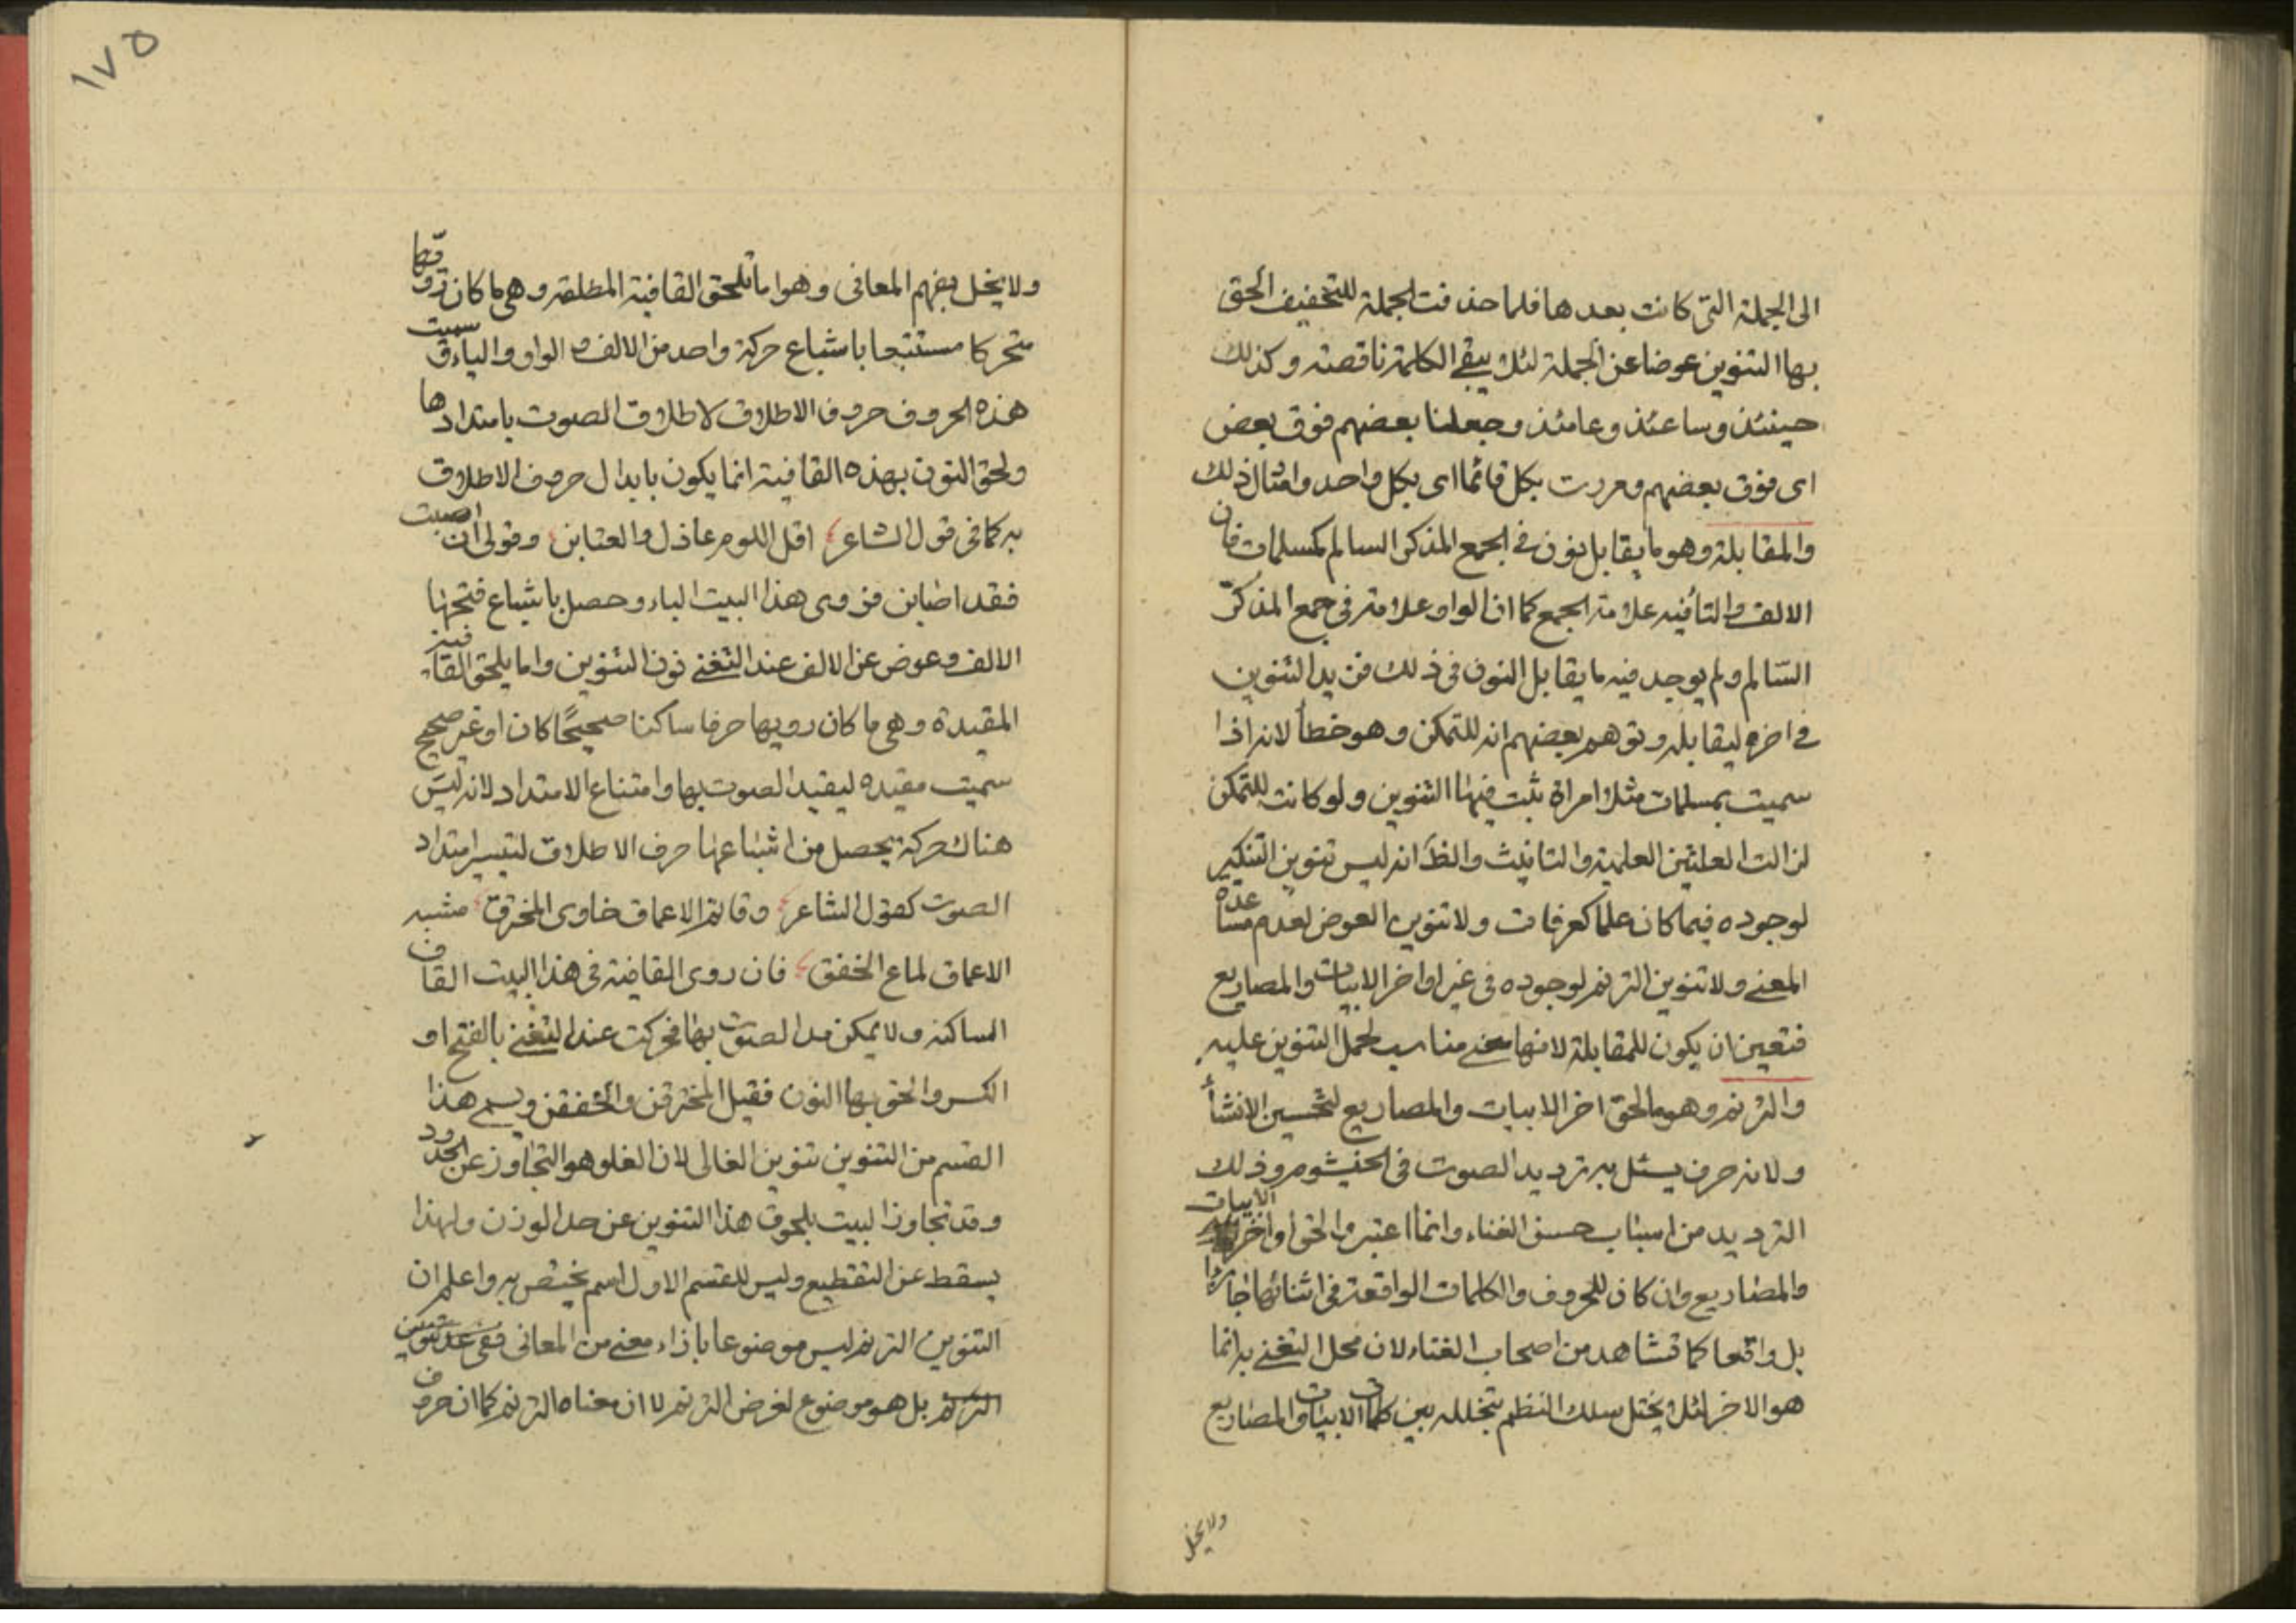 الى الجملة التى كانت بعدها فلما حذفت الجملة للتخفيف الحق
بها التنوين عوضا عن الجملة لئلا يبقى الكلمة ناقصة وكذلك
حينئذ وساعتئذ وعامئذ وجعلنا بعضهم فوق بعض
اى فوق بعضهم ومررت بكل قائما اى بكل واحد وامثال ذلك
والمقابلة وهو ما يقابل نون فى الجمع المذكر السالم كمسلمات فان
الالف والتاء فيه علامة الجمع كما ان الواو علامة فى جمع المذكر
السالم ولم يوجد فيه ما يقابل النون فى ذلك فزيد التنوين
فى اخره ليقابله وتوهم بعضهم انه للتمكن وهو خطأ لانه اذا
سميت بمسلمات مثلا امراة ثبت فيها التنوين ولو كانت للتمكن
لزالت العلتين العلمية والتانيث والظ انه ليس تنوين التنكير
لوجوده فيما كان علما كعرفات ولا تنوين العوض لعدم مساعدة
المعنى ولا تنوين الترنم لوجوده فى غير اواخر الابيات والمصاريع
فتعين ان يكون للمقابلة لانها معنى مناسب لحمل التنوين عليه
والترنم وهو ما لحق اخر الابيات والمصاريع لتحسين الانشأ
ولانه حرف يسئل به ترديد الصوت فى الخيشوم وذلك
الترديد من اسباب حسن الغناء وانما اعتبروا لحق اواخر الابيات
والمصاريع وان كان للحروف والكلمات الواقعة فى اثنائها جائزا
بل واقعا كما تشاهد من اصحاب الغناء لان محل التغنى به انما
هو الاخر لئلا يختل سلك النظم بتخلله بين كلمات الابيات والمصاريع
ولا يخل
١٧٥
ولا يخل بفهم المعانى وهو اما تلحق القافية المطلقة وهى ما كان رويها
متحركا مستتبعا باشباع حركة واحد من الالف و الواو والياء سميت
هذه الحروف حروف الاطلاق لاطلاق الصوت بامتدادها
ولحق النون بهذه القافية انما يكون بابدال حرف الاطلاق
به كما فى قول الشاعر اقل اللوم عاذل والعتابن وقولى ان اصبت
فقد اصابن فروى هذا البيت الباء وحصل باشباع فتحها
الالف وعوض عن الالف عند التغنى نون التنوين واما يلحق القافية
المقيدة وهى ما كان رويها حرفا ساكنا صحيحا كان او غير صحيح
سميت مقيده ليقيد الصوت بها وامتناع الامتداد لانه ليس
هناك حركة يحصل من اشباعها حرف الاطلاق لتيسير امتداد
الصوت كقول الشاعر وقاتم الاعماق خاوى المخترق مشبه
الاعماق لماع الخفق فان روى القافية فى هذا البيت القاف
الساكنة ولا يمكن مد الصوت بها فحركت عند التغنى بالفتح او
الكسر والحق بها النون فقيل المخترقن والخفقن ويسمى هذا
القسم من التنوين تنوين الغالى لان الغلو هو التجاوز عن الحدود
وقد تجاوز البيت بلحوق هذا التنوين عن حد الوزن ولهذا
يسقط عن التقطيع وليس للقسم الاول اسم يختص به واعلم ان
التنوين الترنم ليس موضوعا بازاء معنى من المعانى ففى عد تنوين
الترنم بل هو موضوع لغرض الترنم لا ان معناه الترنم كما ان حرف